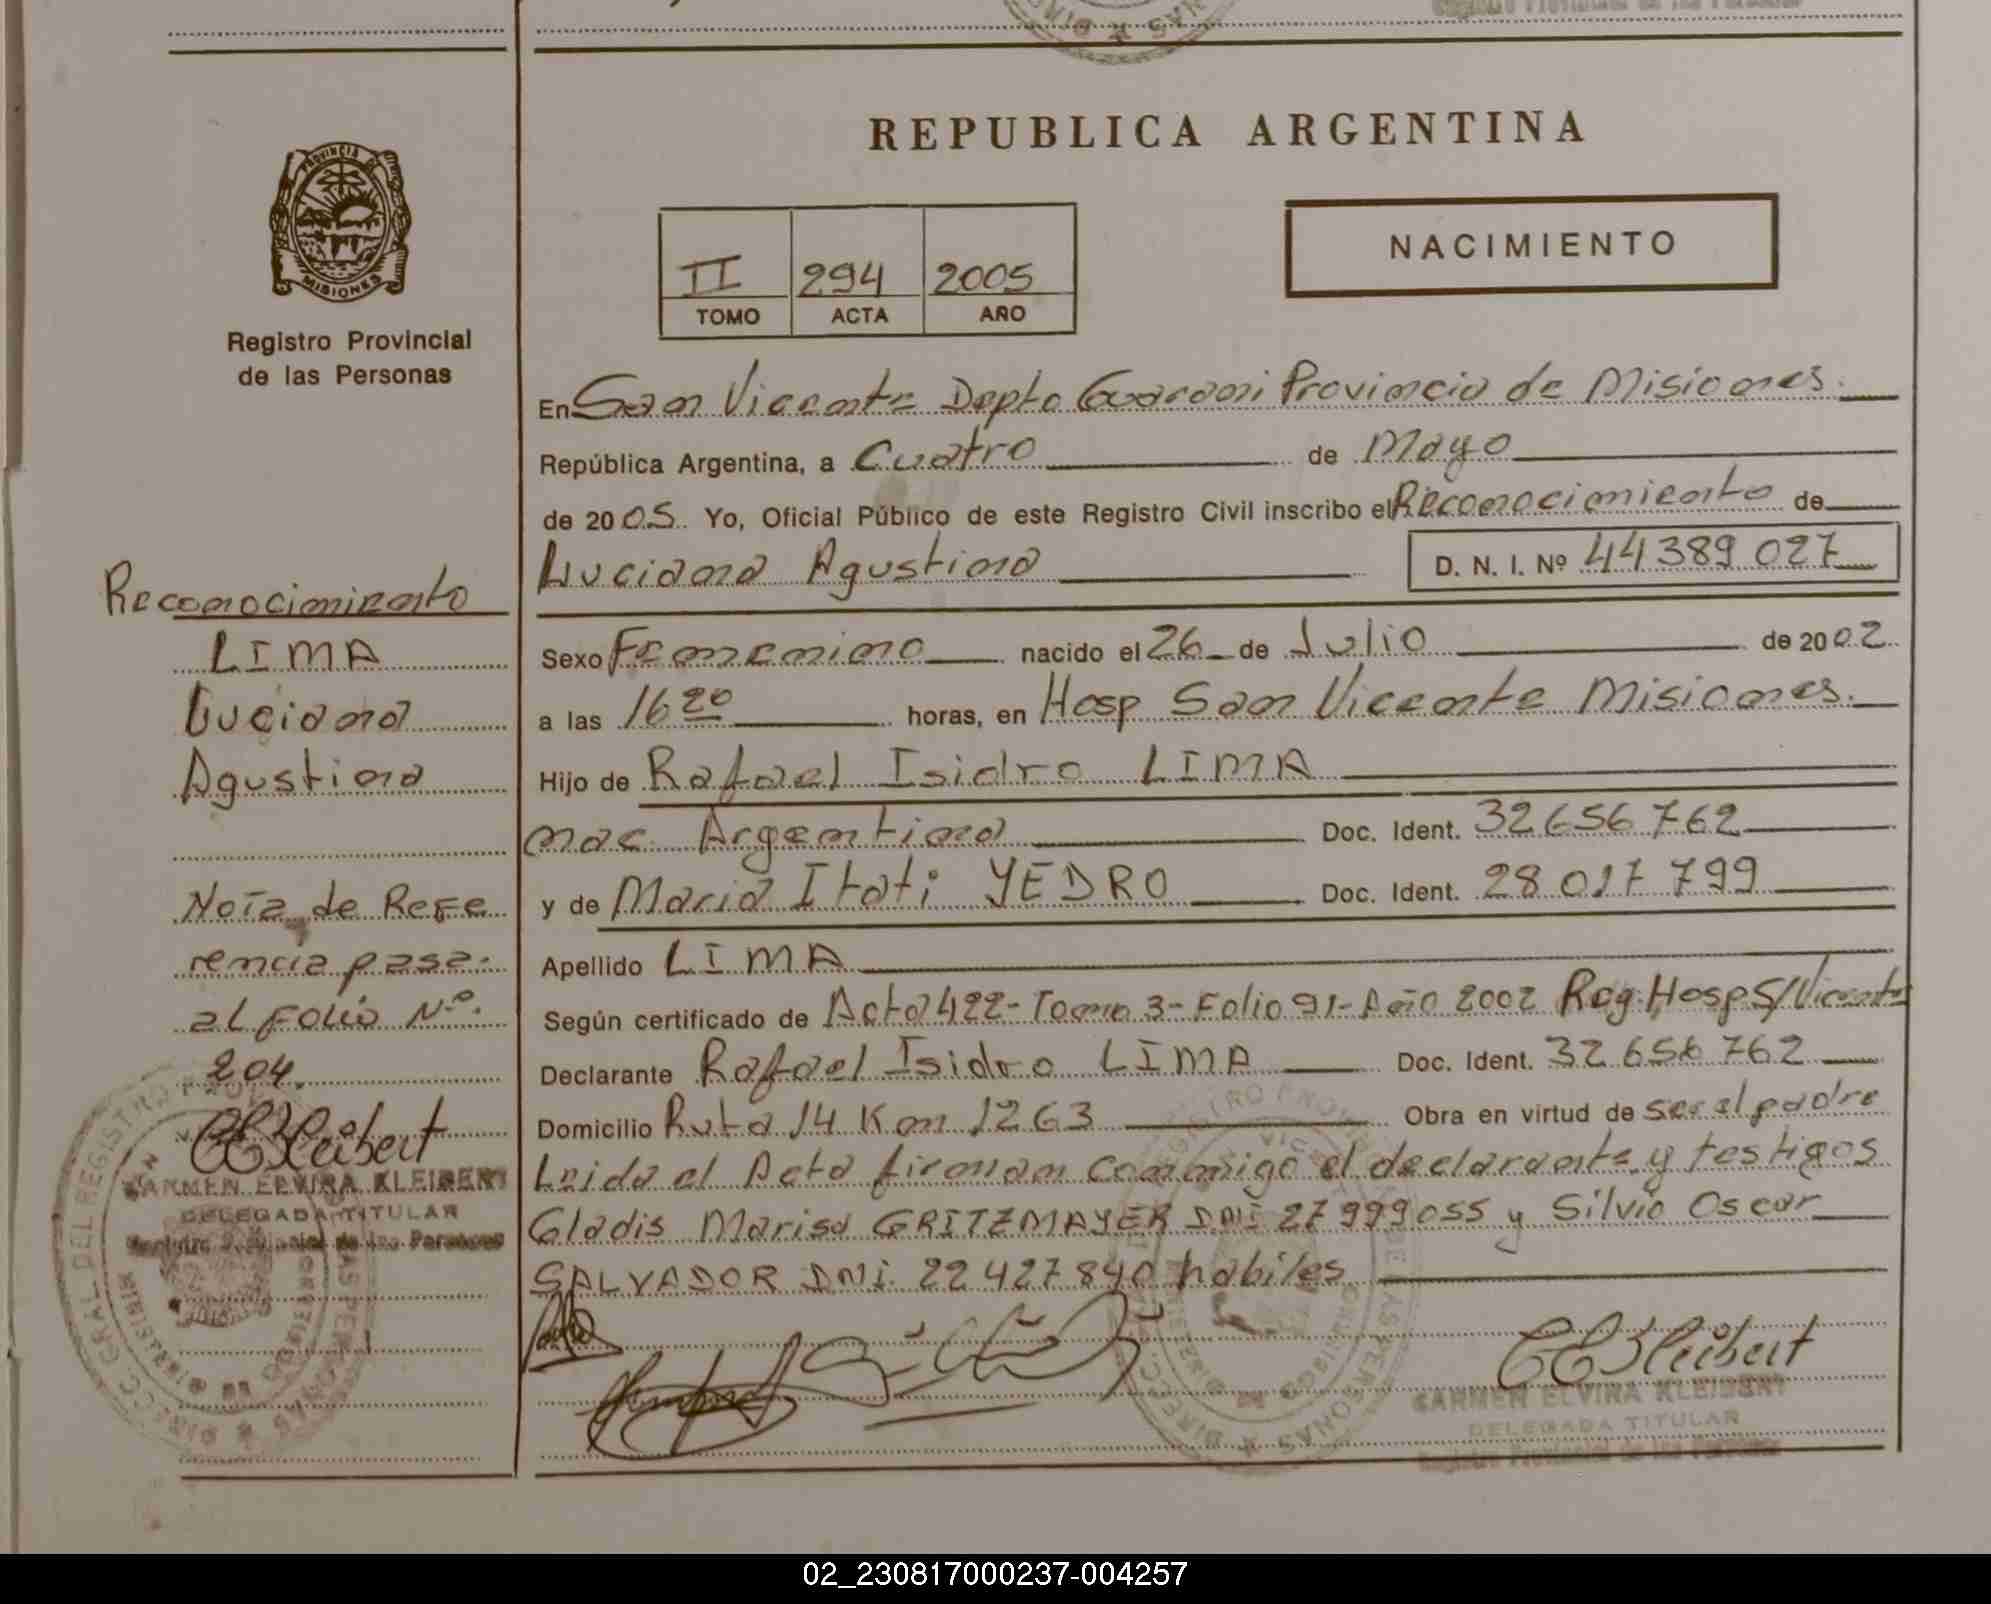 REPUBLICA ARGENTINA
PROVINCIA DE
MISIONES
Registro Provincial
de las Personas
II 294 2005
TOMO ACTA AÑO
NACIMIENTO
En San Vicente Depto Guarani Provincia de Misiones.
República Argentina, a Cuatro de Mayo
de 2005. Yo, Oficial Público de este Registro Civil inscribo el Reconocimiento de
Luciana Agustina D. N. I. Nº 44389027
Sexo Femenino nacido el 26 de Julio de 2002
a las 16 20 horas, en Hosp San Vicente Misiones.
Hijo de Rafael Isidro LIMA
nac. Argentina Doc. Ident. 32656762
y de Maria Itati YEDRO Doc. Ident. 28 017 799
Apellido LIMA
Según certificado de Acta 422- Tomo 3- Folio 91- Año 2002 Reg. Hosp S/Vicente
Declarante Rafael Isidro LIMA Doc. Ident. 32 656 762
Domicilio Ruta 14 Km 1263 Obra en virtud de ser el padre
Leida el Acta firman conmigo el declarante y testigos
Gladis Marisa GRITZMAYER DNi 27999055 y Silvio Oscar
SALVADOR DNi. 22427840 habiles
CEKleibert
CARMEN ELVIRA KLEIBERT
DELEGADA TITULAR
Registro Provincial de las Personas
Reconocimiento
LIMA
Luciana
Agustina
Nota de Refe
rencia pasa.
al Folio Nº.
204.
CEKleibert
CARMEN ELVIRA KLEIBERT
DELEGADA TITULAR
Registro Provincial de las Personas
02_230817000237-004257